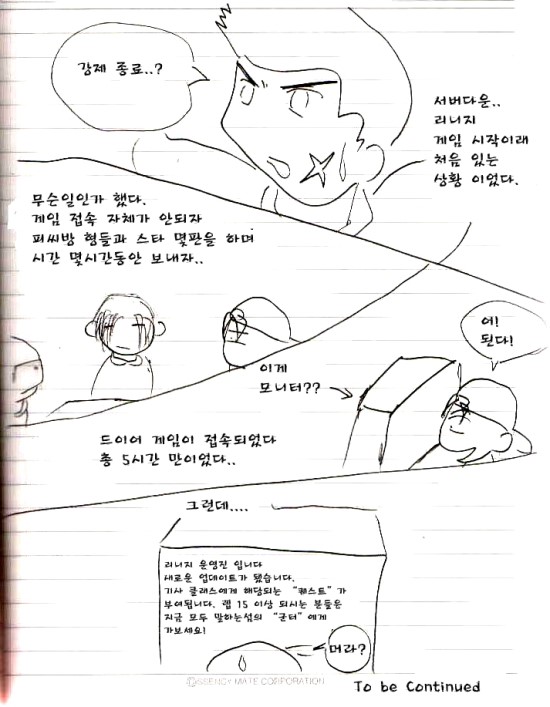 강제 종료..?
서버다운..
리니지
게임 시작이래
처음 있는
상황 이었다.
무슨일인가 했다.
게임 접속 자체가 안되자
피씨방 형들과 스타 몇판을 하며
시간 몇시간동안 보내자..
어!
된다!
이게
모니터??
드이어 게임이 접속되었다
총 5시간 만이었다..
그런데....
리니지 운영진 입니다
새로운 업데이트가 됐습니다.
기사 클래스에게 해당되는 "퀘스트"가
부여됩니다. 렙 15 이상 되시는 분들은
지금 모두 말하는섬의 "군터"에게
가보세요!
머라?
MATE CORPORATION
To be Continued